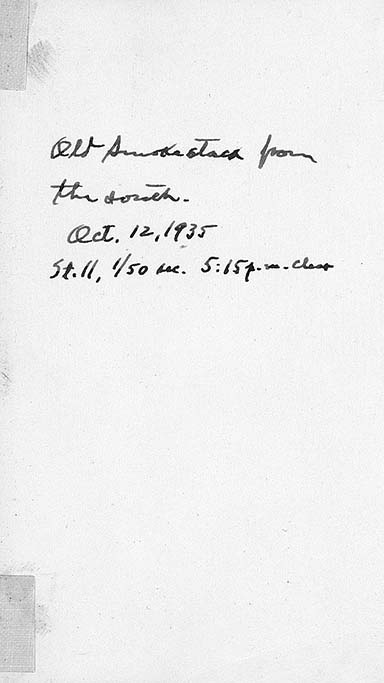 Old Smokestack from
the south.
Oct. 12, 1935
St. 11, 1/50 sec. 5:15 p.m. Clear